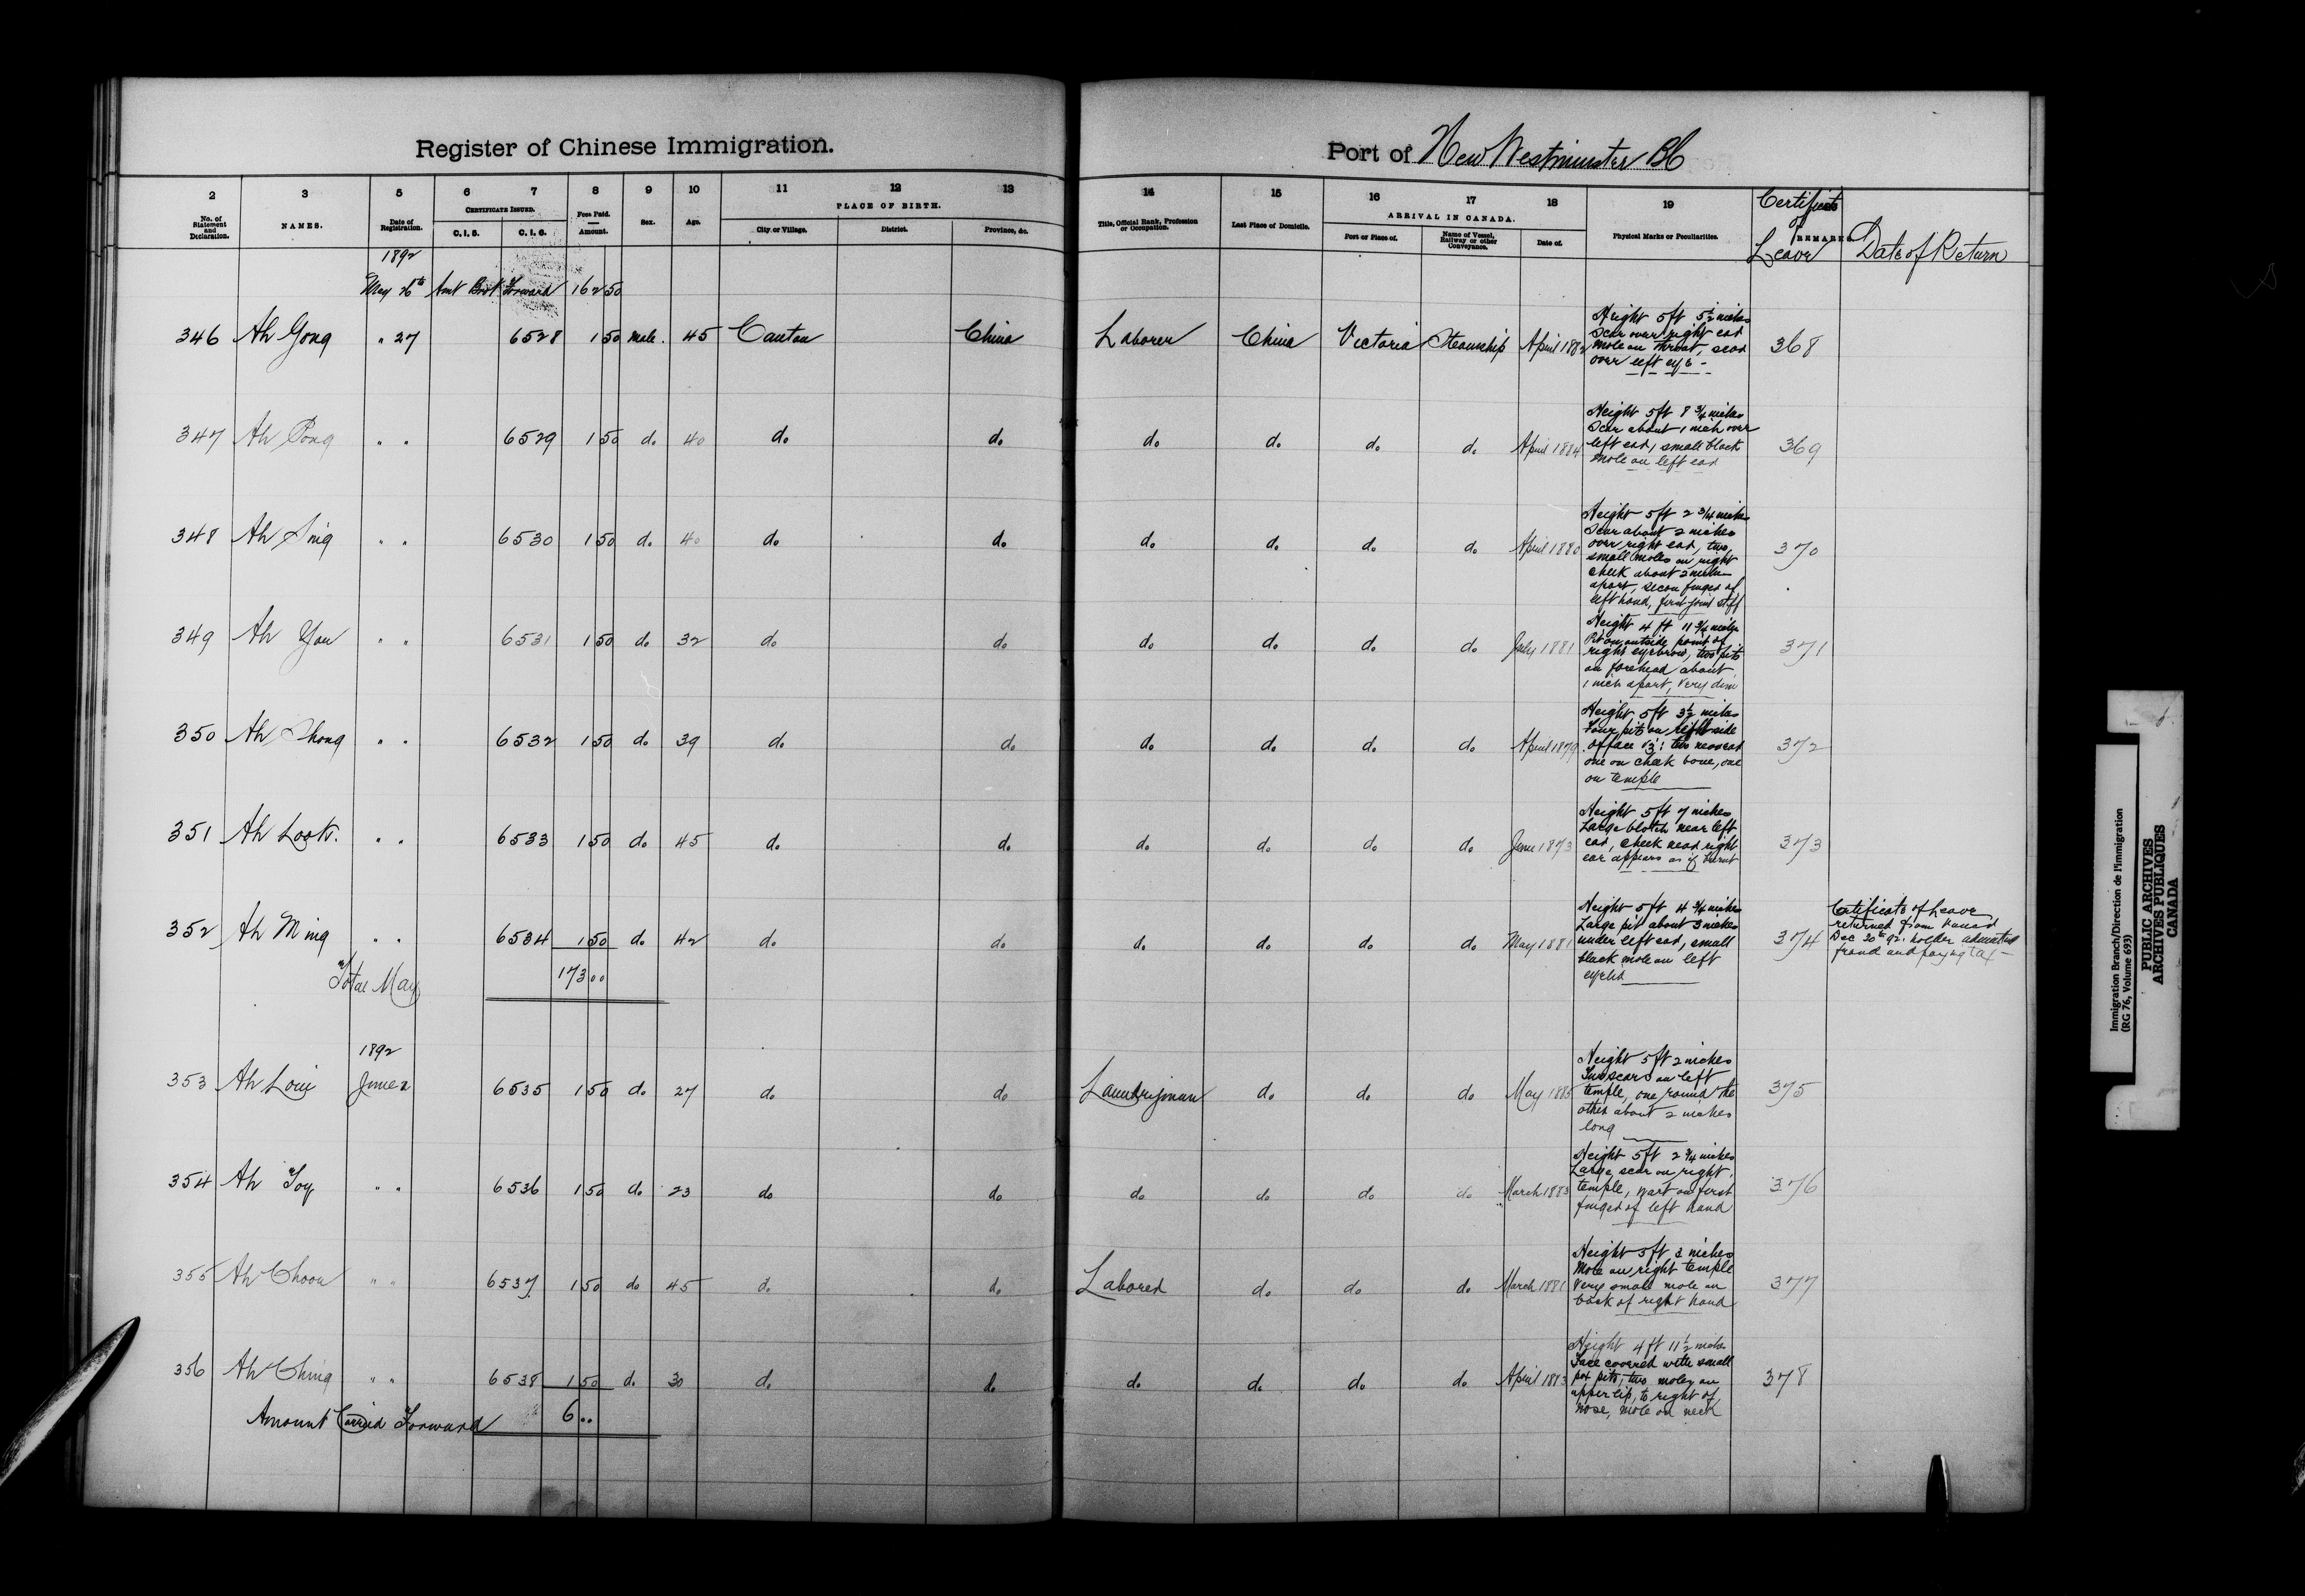 Register of Chinese Immigration.
Port of New Westminster BC
2 3 5 6 7 8 9 10 11 12 13 14 15 16 17 18 19
No. of Statement and Declaration. NAMES. Date of Registration. CERTIFICATE ISSUED. C.I.5. C.I.6. Fees Paid. Amount. Sex. Age. PLACE OF BIRTH. City or Village. District. Province, &c. Title, Official Rank, Profession or Occupation. Last Place of Domicile. ARRIVAL IN CANADA. Port or Place of. Name of Vessel, Railway or other Conveyance. Date of. Physical Marks or Peculiarities. Certificate of Leave REMARKS. Date of Return
1892
May 26th Amt Brot Forward 162 50
346 Ah Gong " 27 6528 1 50 male. 45 Canton China Laborer China Victoria Steamship April 1882
Height 5 ft 5 1/2 inches
Scar over right ear
mole on throat, scar
over left eye -
368
347 Ah Pong " " 6529 1 50 do 40 do do do do do do April 1884
Height 5 ft 8 3/4 inches
Scar about 1 inch over
left ear, small black
mole on left ear
369
348 Ah Sing " " 6530 1 50 do 40 do do do do do do April 1880
Height 5 ft 2 3/4 inches
Scar about 2 inches
over right ear, two
small moles on right
cheek about 2 inches
apart, secon finger of
left hand, first joint stiff
370
349 Ah You " " 6531 1 50 do 32 do do do do do do July 1881
Height 4 ft 11 3/4 inches
Pit on outside point of
right eyebrow, two pits
on forehead about
1 inch apart, very dim
371
350 Ah Chong " " 6532 1 50 do 39 do do do do do do April 1879
Height 5 ft 3 1/2 inches
Four pits on side
of face viz: two near ear
one on cheek bone, one
on temple
372
351 Ah Look. " " 6533 1 50 do 45 do do do do do do June 1873
Height 5 ft 7 inches
Large blotch near left
ear, cheek near right
ear appears as if burnt
373
352 Ah Ming " " 6534 1 50 do 42 do do do do do do May 1881
Height 5 ft 4 3/4 inches
Large pit about 3 inches
under left ear, small
black mole on left
eyelid
374
Certificate of Leave
returned from
Dec 20th 92. holder admitted
fraud and paying tax -
Total May 173 00
1892
353 Ah Loui June 2 6535 1 50 do 27 do do Laundryman do do do May 1885
Height 5 ft 2 inches
Two scars on left
temple, one round the
other about 2 inches
long
375
354 Ah Toy " " 6536 1 50 do 23 do do do do do do March 1883
Height 5 ft 2 3/4 inches
Large scar on right
temple, wart on first
finger of left hand
376
355 Ah Choou " " 6537 1 50 do 45 do do Laborer do do do March 1881
Height 5 ft 3 inches
Mole on right temple
Very small mole on
back of right hand
377
356 Ah Ching " " 6538 1 50 do 30 do do do do do do April 1883
Height 4 ft 11 1/2 inches
Face covered with small
pox pits, two moles on
upper lip, to right of
nose, mole on neck
378
Amount Carried Forward 6 00
Immigration Branch/Direction de l'immigration
(RG 76, Volume 693)
PUBLIC ARCHIVES
ARCHIVES PUBLIQUES
CANADA